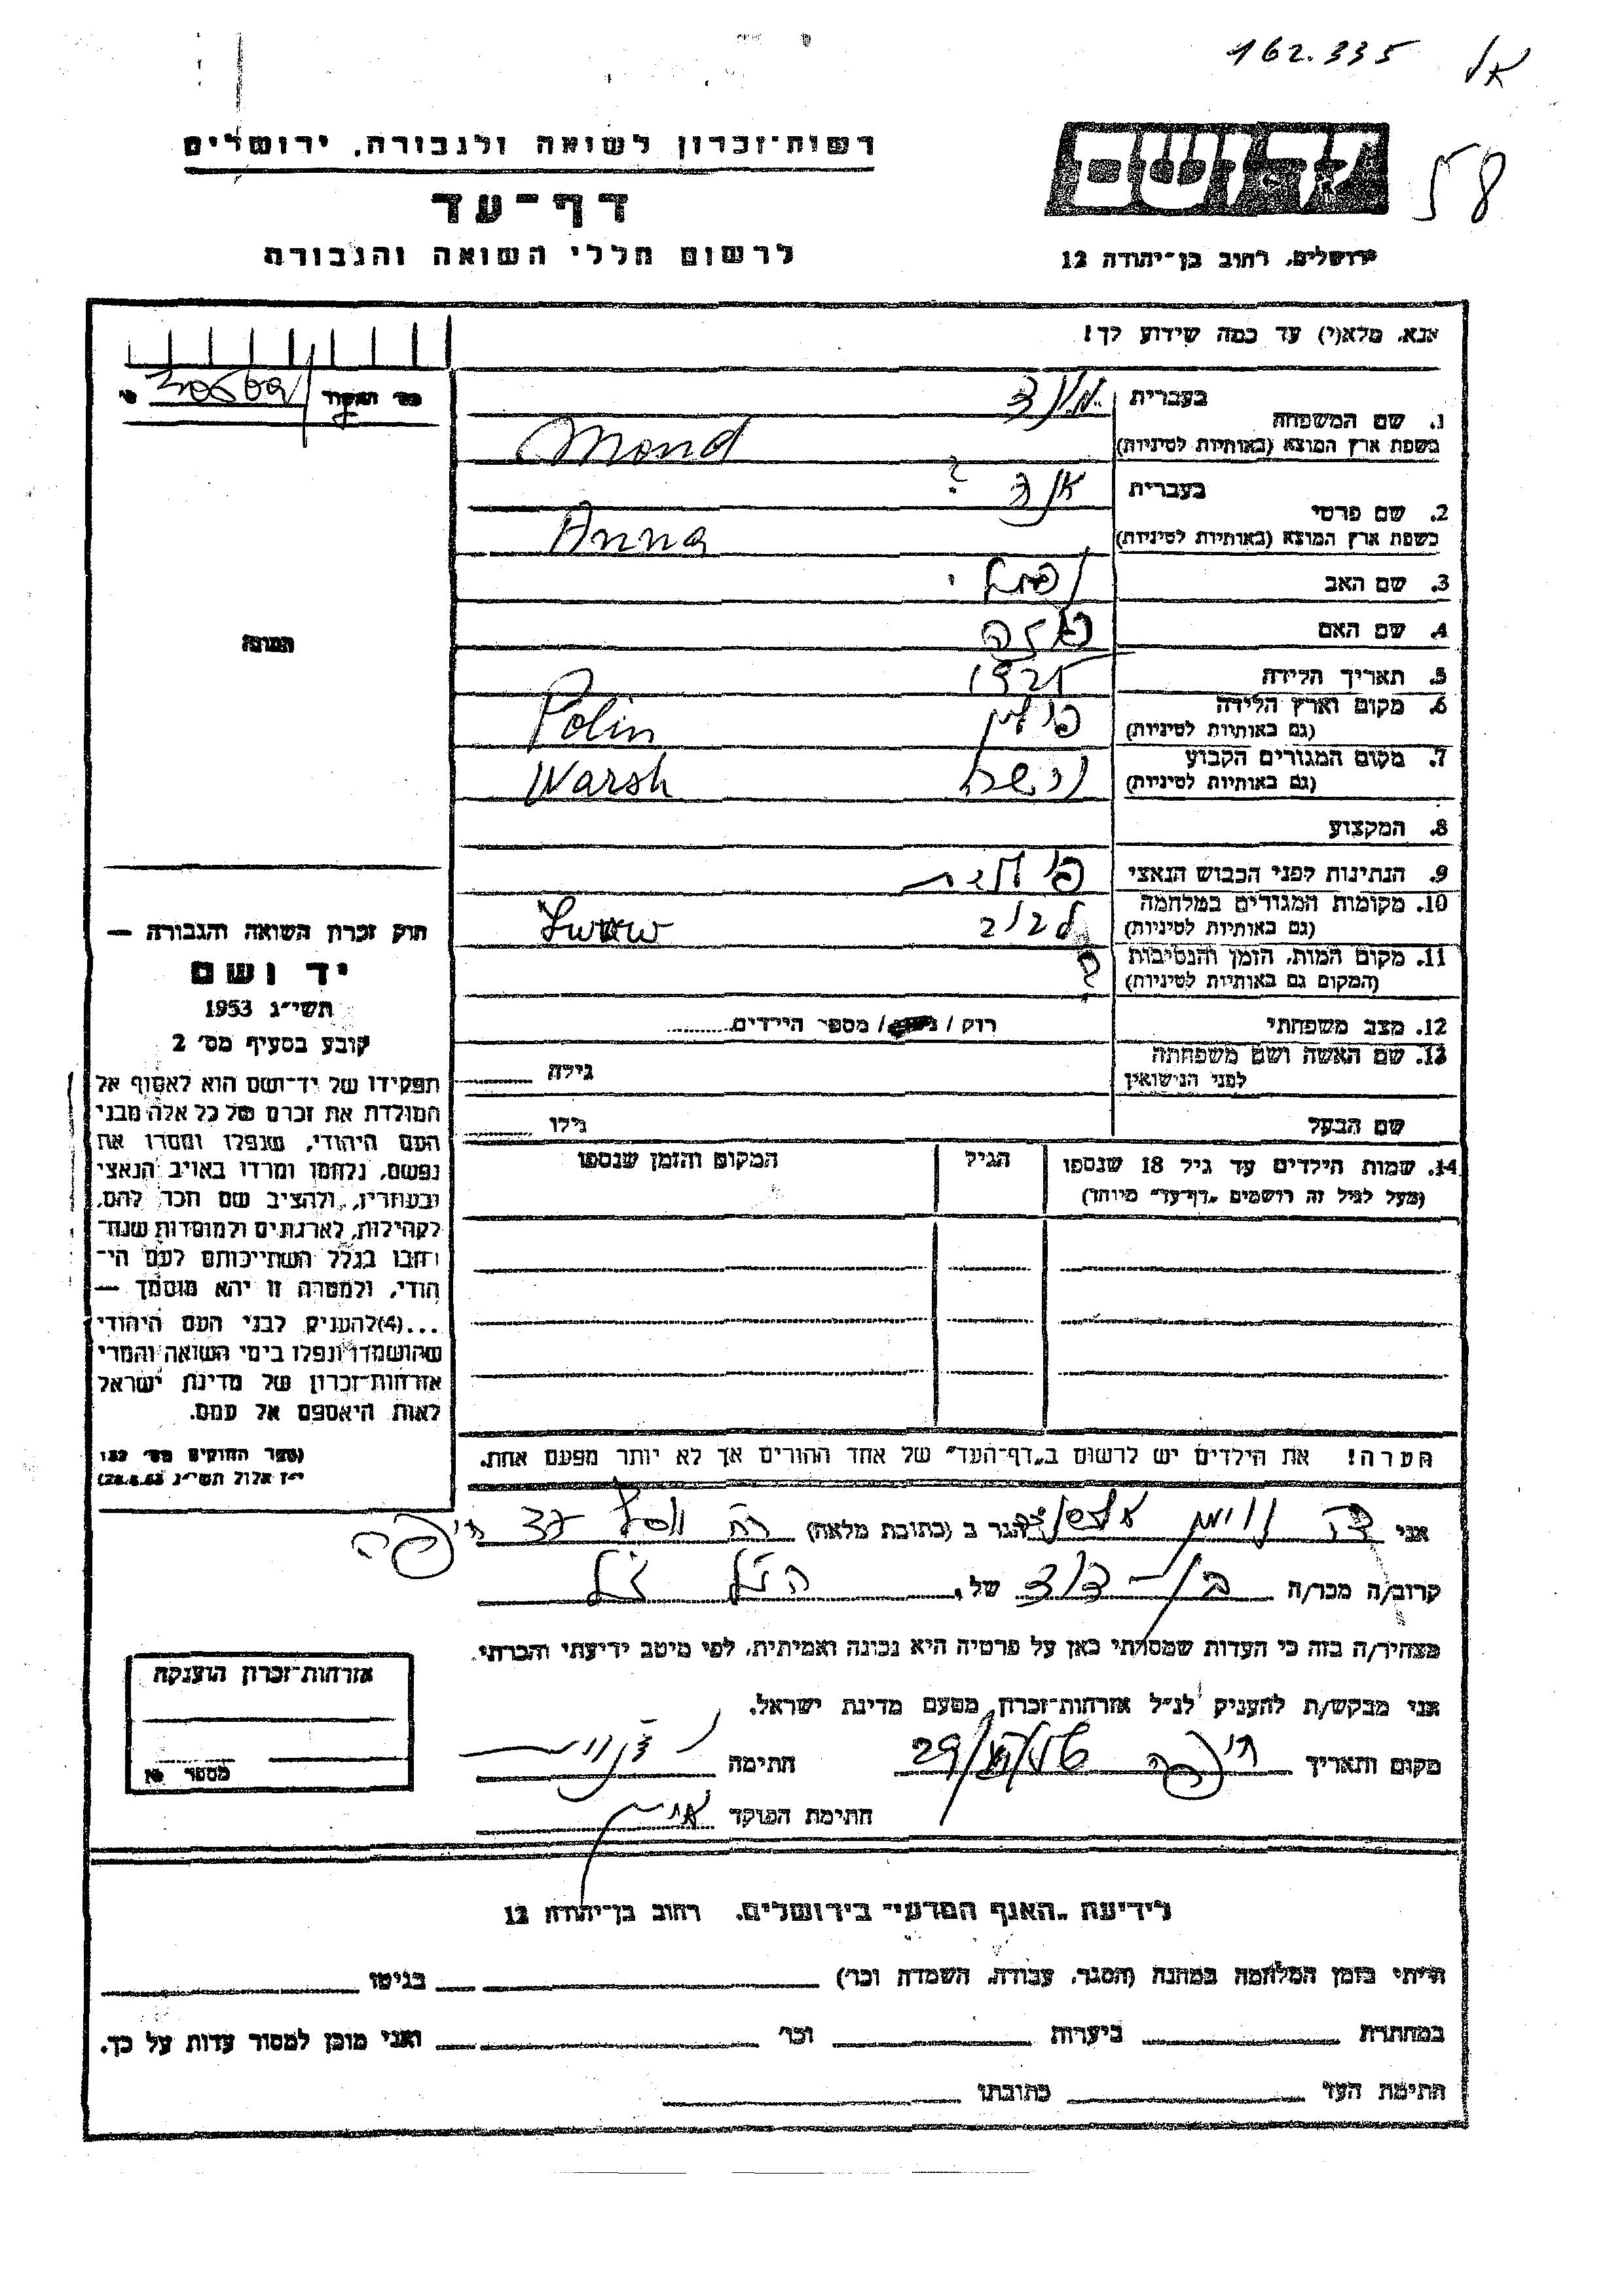 162.335
58
רשות-זכרון לשואה ולגבורה, ירושלים
דף-עד
לרשום חללי השואה והגבורה
ירושלים, רחוב בן-יהודה 12
אנא, מלא(י) עד כמה שידוע לך!
בעברית
1. שם המשפחה
בשפת ארץ המוצא (באותיות לטיניות) Mond
בעברית ?
2. שם פרטי
בשפת ארץ המוצא (באותיות לטיניות) Anna
3. שם האב
4. שם האם
5. תאריך הלידה 1921
6. מקום וארץ הלידה פולין Polin
(גם באותיות לטיניות)
7. מקום המגורים הקבוע Warsh
(גם באותיות לטיניות)
8. המקצוע
9. הנתינות לפני הכבוש הנאצי פולנית
10. מקומות המגורים במלחמה לבוב Lwow
(גם באותיות לטיניות)
11. מקום המות, הזמן והנסיבות
(המקום גם באותיות לטיניות)
12. מצב משפחתי רוק / / מספר הילדים
13. שם האשה ושם משפחתה גילה
לפני הנישואין
שם הבעל גילו
14. שמות הילדים עד גיל 18 שנספו הגיל המקום והזמן שנספו
(מעל לגיל זה רושמים "דף-עד" מיוחד)
הערה! את הילדים יש לרשום ב"דף-העד" של אחד ההורים אך לא יותר מפעם אחת.
התמונה
חוק זכרון השואה והגבורה —
יד ושם
תשי"ג 1953
קובע בסעיף מס' 2
תפקידו של יד-ושם הוא לאסוף אל
המולדת את זכרם של כל אלה מבני
העם היהודי, שנפלו ומסרו את
נפשם, נלחמו ומרדו באויב הנאצי
ובעוזריו, ולהציב שם וזכר להם,
לקהילות, לארגונים ולמוסדות שנח-
רבו בגלל השתייכותם לעם הי-
הודי, ולמטרה זו יהא מוסמך —
...(4)להעניק לבני העם היהודי
שהושמדו ונפלו בימי השואה והמרי
אזרחות-זכרון של מדינת ישראל
לאות היאספם אל עמם.
(ספר החוקים מס' 132
י"ז אלול תשי"ג 28.8.53)
אני הגר ב (כתובת מלאה) חיפה
קרוב/ה מכר/ה בן-דוד של
מצהיר/ה בזה כי העדות שמסרתי כאן על פרטיה היא נכונה ואמיתית, לפי מיטב ידיעתי והכרתי.
אני מבקש/ת להעניק לנ"ל אזרחות-זכרון מטעם מדינת ישראל.
מקום ותאריך חיפה חתימה
חתימת הפוקד
אזרחות-זכרון הוענקה
מספר
לידיעת "האגף המדעי" בירושלים, רחוב בן-יהודה 12
הייתי בזמן המלחמה במחנה (הסגר, עבודה, השמדה וכו') בגיטו
במחתרת ביערות וכו' ואני מוכן למסור עדות על כך.
חתימת העד כתובתו